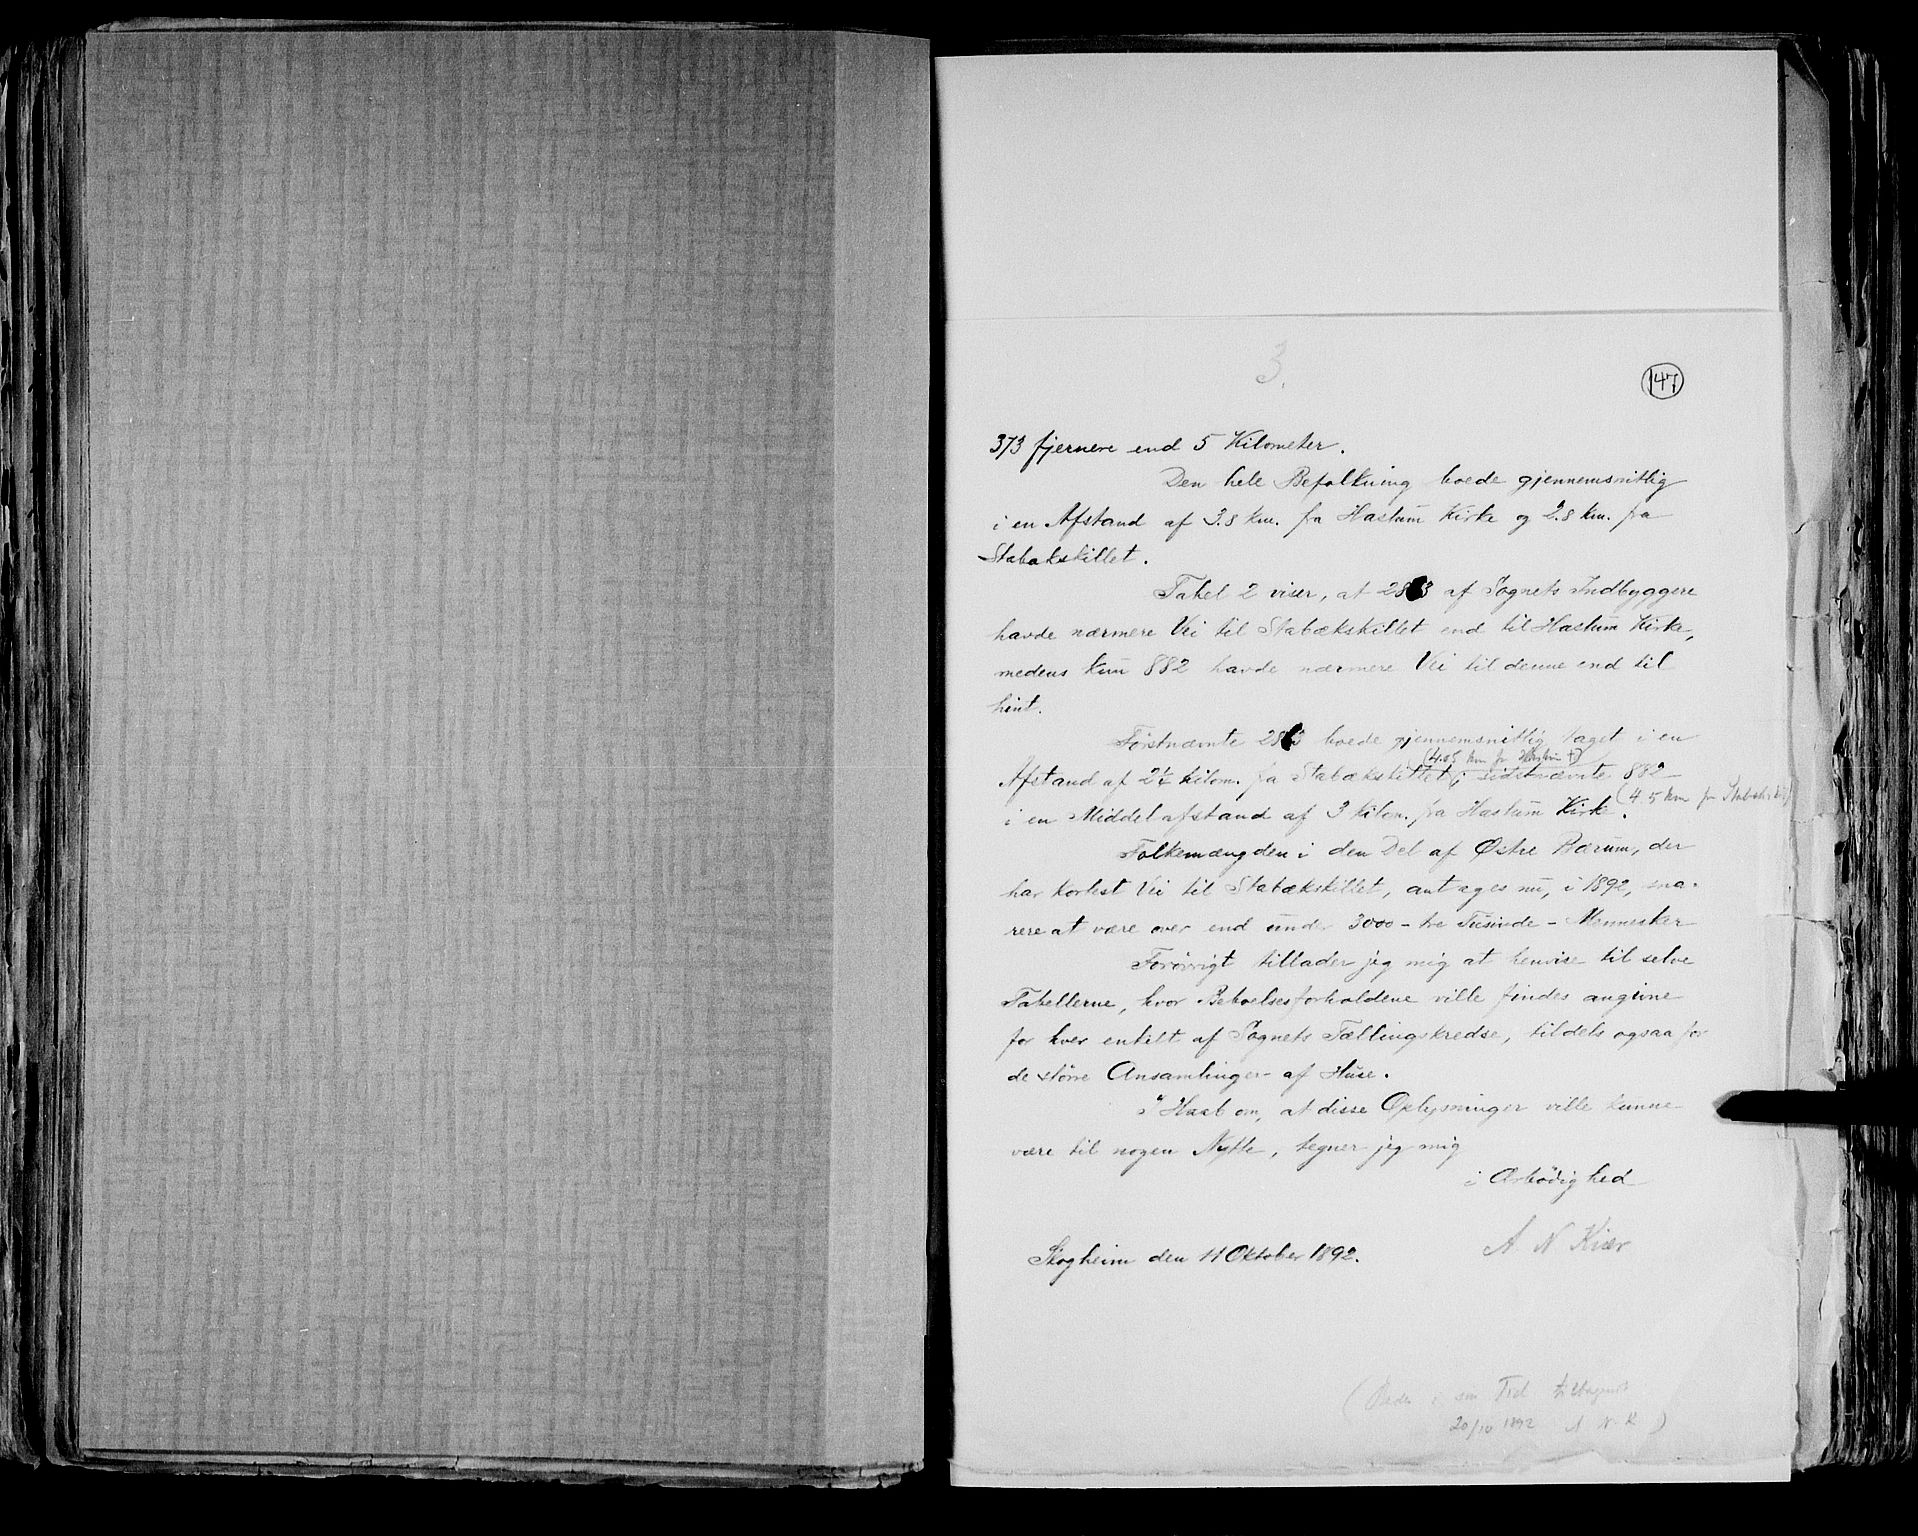 3.
147
373 fjernere end 5 Kilometer.
Den hele Befolkning boede gjennemsnitlig
i en Afstand af 3.8 km. fra Haslum Kirke og 2.8 km. fra
Stabækskillet.
Tabel 2 viser, at 28 3 af Sognets Indbyggere
havde nærmere Vei til Stabækskillet end til Haslum Kirke,
medens kun 882 havde nærmere Vei til denne end til
hint.
Førstnævnte 28 3 boede gjennemsnitlig taget i en
(4.05 km fr Haslum K)
Afstand af 2¼ kilom. fra Stabækskillet; sidstnævnte 882
(4.5 km fr Stabæksk)
i en Middelafstand af 3 kilom. fra Haslum Kirke.
Folkemængden i den Del af Østre Bærum, der
har kortest Vei til Stabækskillet, antages nu, i 1892, sna-
rere at være over end under 3000 - tre Tusinde - Mennesker
Forøvrigt tillader jeg mig at henvise til selve
Tabellerne, hvor Beboelsesforholdene ville findes angivne
for hver enkelt af Sognets Tællingskredse, tildels ogsaa for
de større Ansamlinger af Huse.
I Haab om, at disse Oplysninger ville kunne
være til nogen Nytte, tegner jeg mig
i Ærbødighed
A N Kiær
Skogheim den 11 Oktober 1892.
i sin Tid
20/10 1892 A N K )